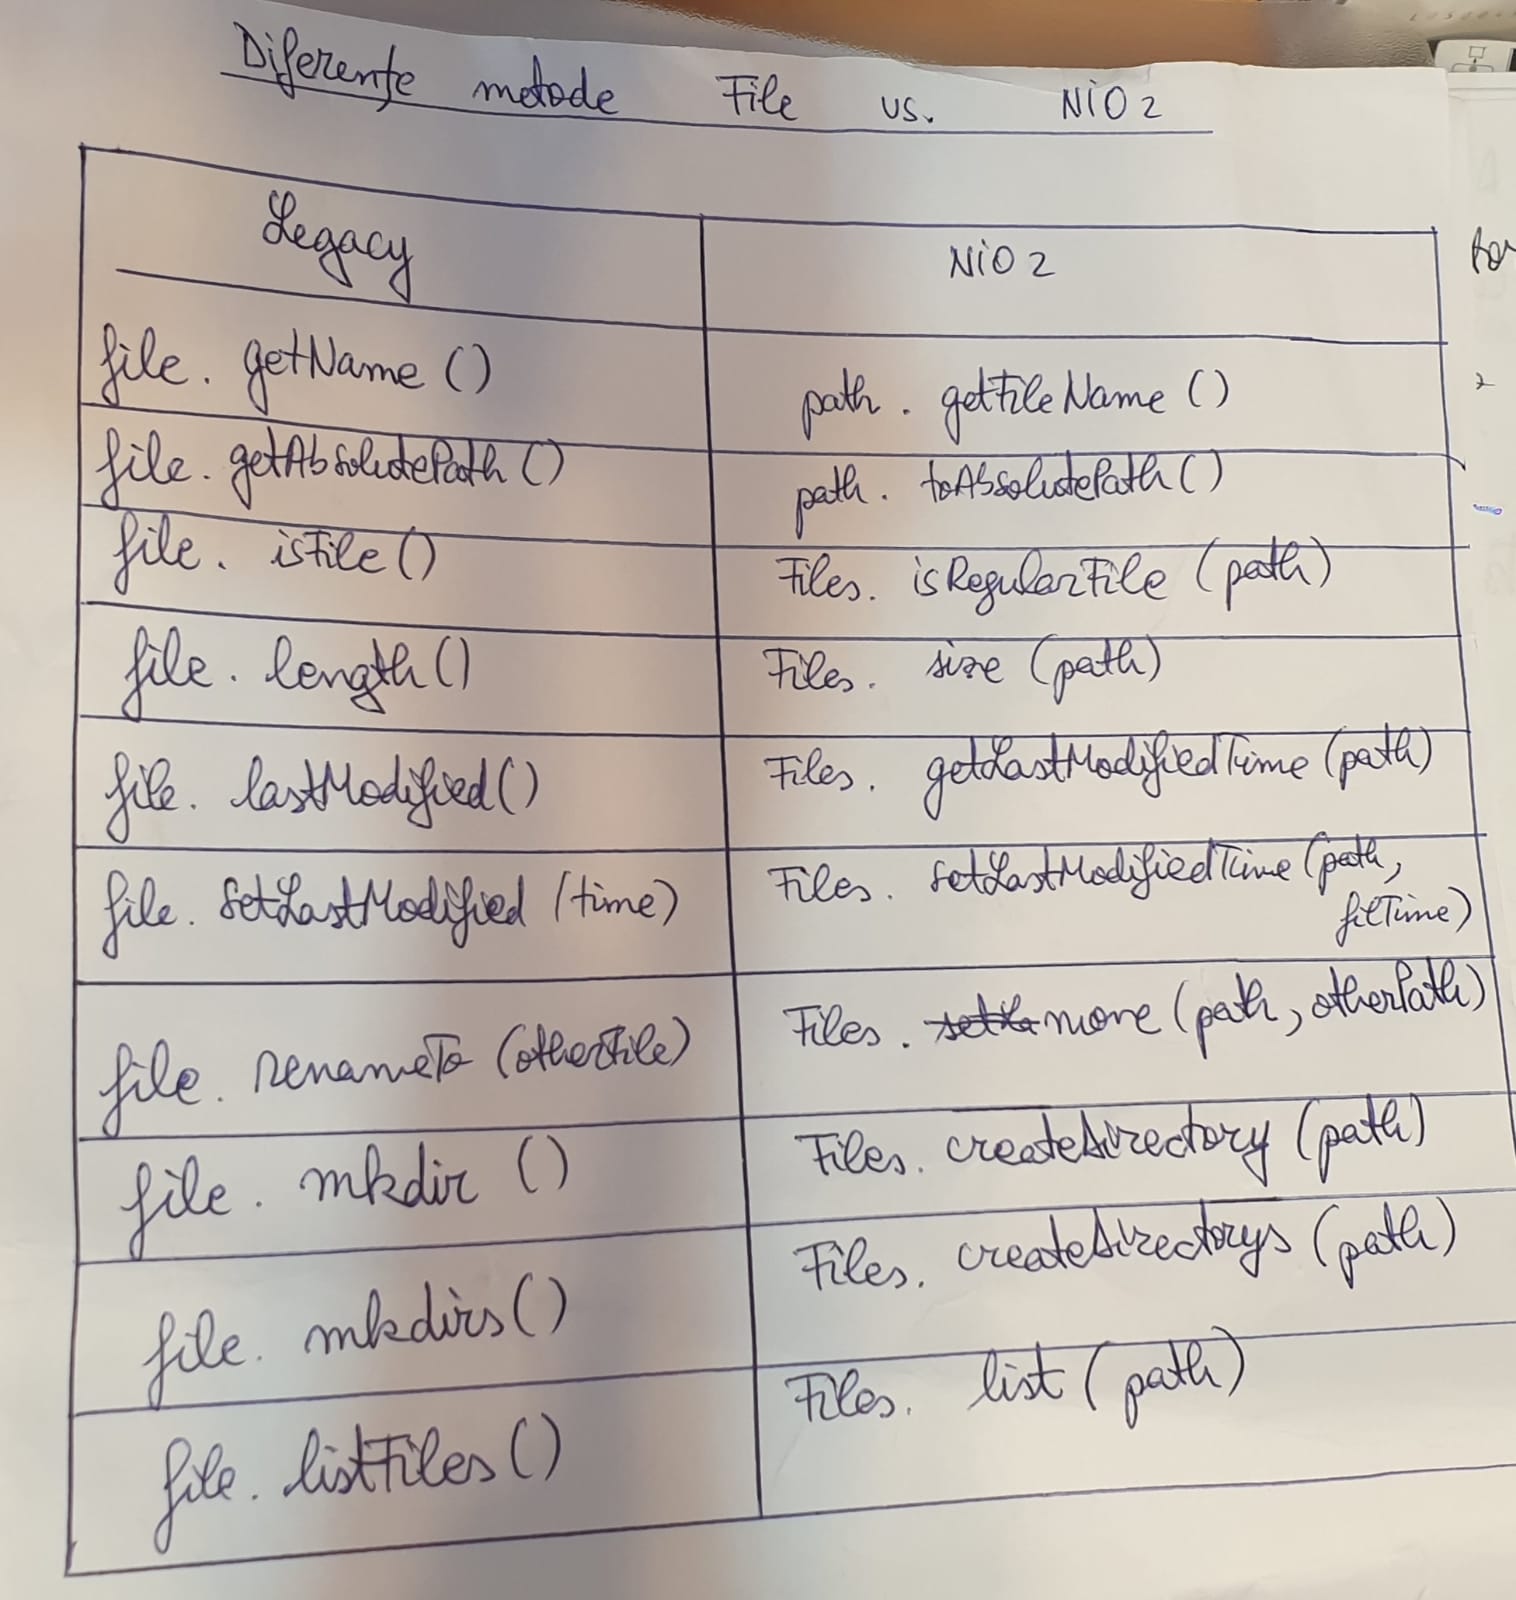 Diferențe metode File vs. NiO2
Legacy NiO2
file. getName () path. getFileName ()
file. getAbsolutePath () path. toAbsolutePath ()
file. isFile () Files. isRegularFile (path)
file. length () Files. size (path)
file. lastModified () Files. getLastModifiedTime (path)
file. setLastModified (time) Files. setLastModifiedTime (path,
filTime)
file. renameTo (otherFile) Files. move (path, otherPath)
file. mkdir () Files. createDirectory (path)
file. mkdirs () Files. createDirectorys (path)
file. listFiles () Files. list (path)